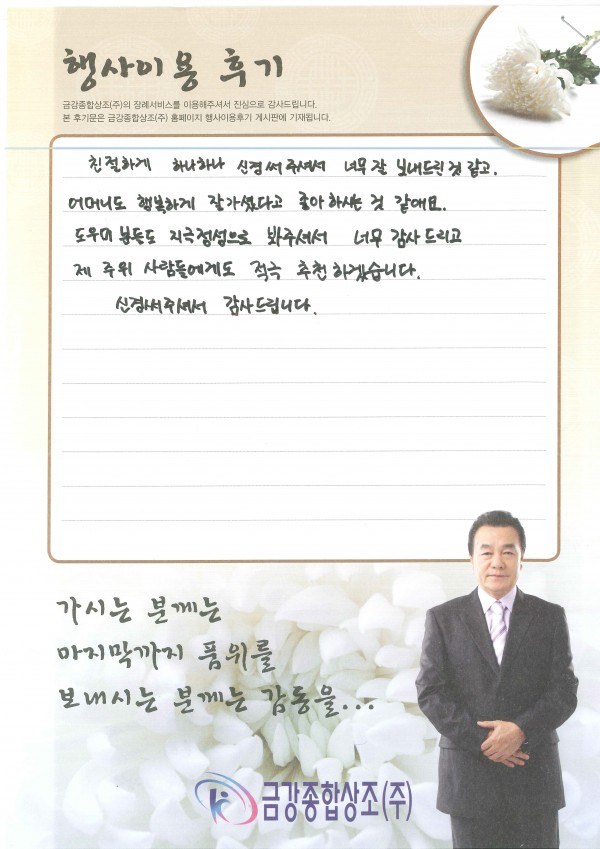 행사이용 후기
금강종합상조(주)의 장례서비스를 이용해주셔서 진심으로 감사드립니다.
본 후기문은 금강종합상조(주) 홈페이지 행사이용후기 게시판에 기재됩니다.
친절하게 하나하나 신경써주셔서 너무 잘 보내드린것 같고.
어머니도 행복하게 잘가셨다고 좋아하시는 것 같애요.
도우미 분들도 지극정성으로 봐주셔서 너무 감사드리고
제 주위 사람들에게도 적극 추천하겠습니다.
신경써주셔서 감사드립니다.
가시는 분께는
마지막까지 품위를
보내시는 분께는 감동을...
금강종합상조(주)